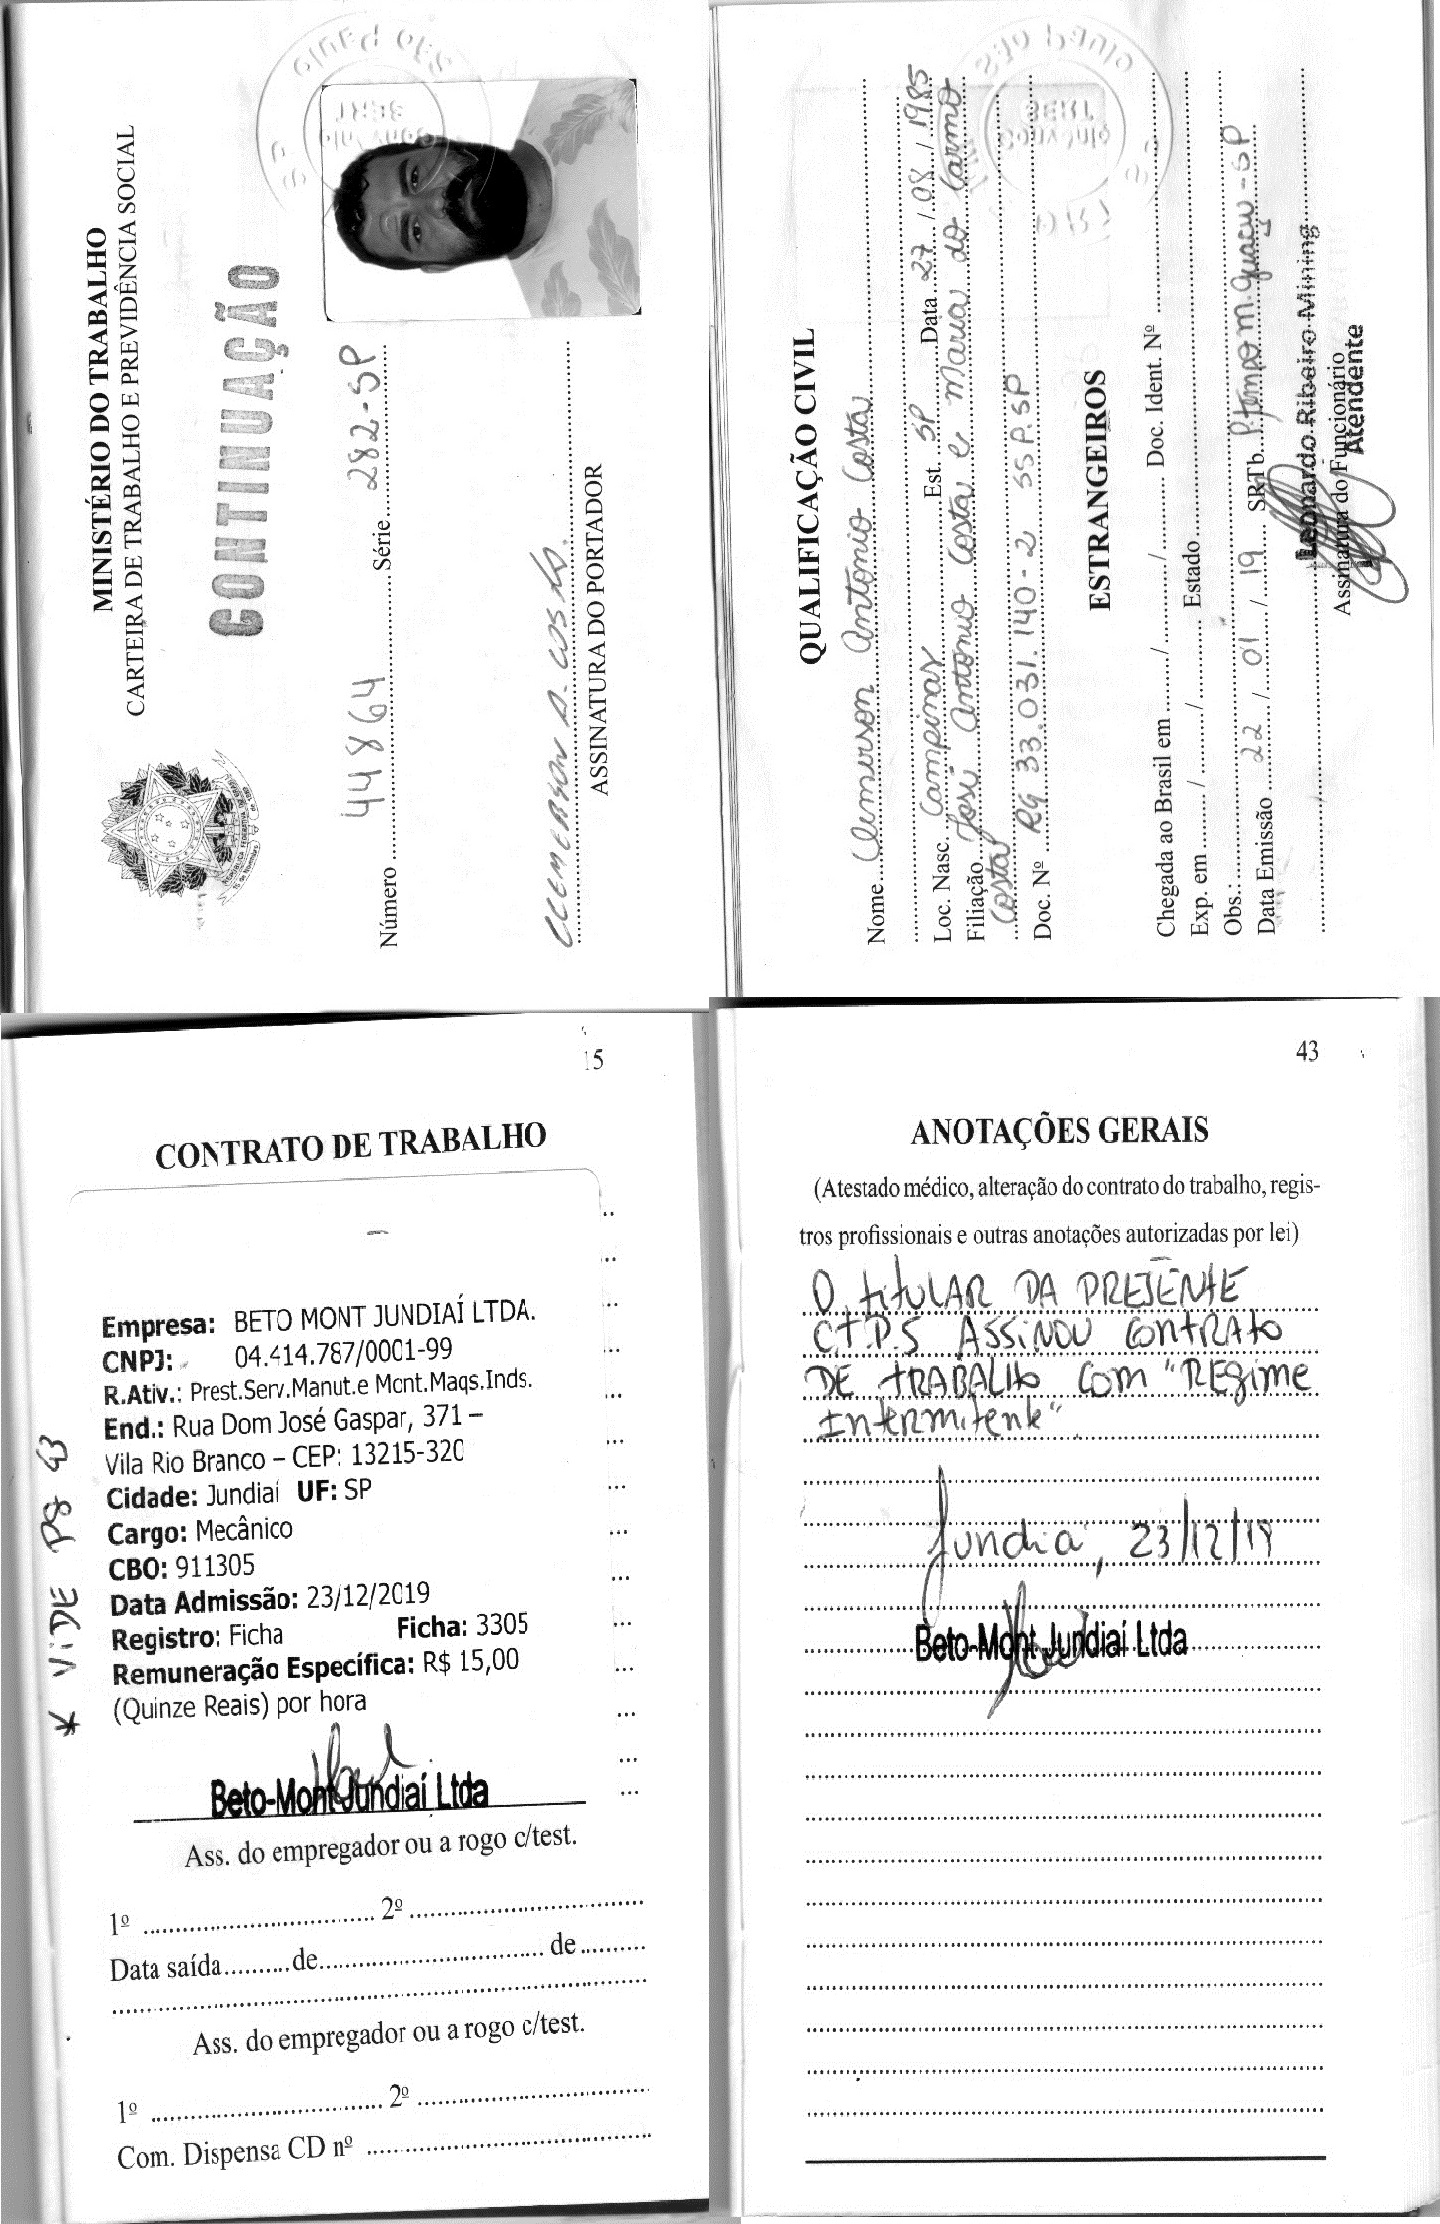 MINISTÉRIO DO TRABALHO
CARTEIRA DE TRABALHO E PREVIDÊNCIA SOCIAL
CONTINUAÇÃO
Número 44864 Série 282-SP
CLEMERSON A. COSTA.
ASSINATURA DO PORTADOR
São Paulo
SERT
QUALIFICAÇÃO CIVIL
Nome Clemerson Antonio Costa
Loc. Nasc. Campinas Est. SP Data 27/08/1985
Filiação José Antonio Costa e Maria do Carmo
Costa
Doc. Nº RG 33.031.140-2 SSP.SP
ESTRANGEIROS
Chegada ao Brasil em / / Doc. Ident. Nº
Exp. em / / Estado
Obs.:
Data Emissão 22/01/19 SRTb. P.tempo M.Guaçu-SP
Leonardo Ribeiro Mining
Assinatura do Funcionário
Atendente
15
CONTRATO DE TRABALHO
Empresa: BETO MONT JUNDIAÍ LTDA.
CNPJ: 04.414.787/0001-99
R.Ativ.: Prest.Serv.Manut.e Mont.Maqs.Inds.
End.: Rua Dom José Gaspar, 371 –
Vila Rio Branco – CEP: 13215-320
Cidade: Jundiaí UF: SP
Cargo: Mecânico
CBO: 911305
Data Admissão: 23/12/2019
Registro: Ficha Ficha: 3305
Remuneração Específica: R$ 15,00
(Quinze Reais) por hora
* VIDE PG 43
Beto-Mont Jundiaí Ltda
Ass. do empregador ou a rogo c/test.
1º 2º
Data saída de de
Ass. do empregador ou a rogo c/test.
1º 2º
Com. Dispensa CD nº
43
ANOTAÇÕES GERAIS
(Atestado médico, alteração do contrato do trabalho, regis-
tros profissionais e outras anotações autorizadas por lei)
O titular da presente
C.T.P.S assinou contrato
de trabalho com "Regime
Intermitente"
Jundiaí, 23/12/19
Beto-Mont Jundiaí Ltda